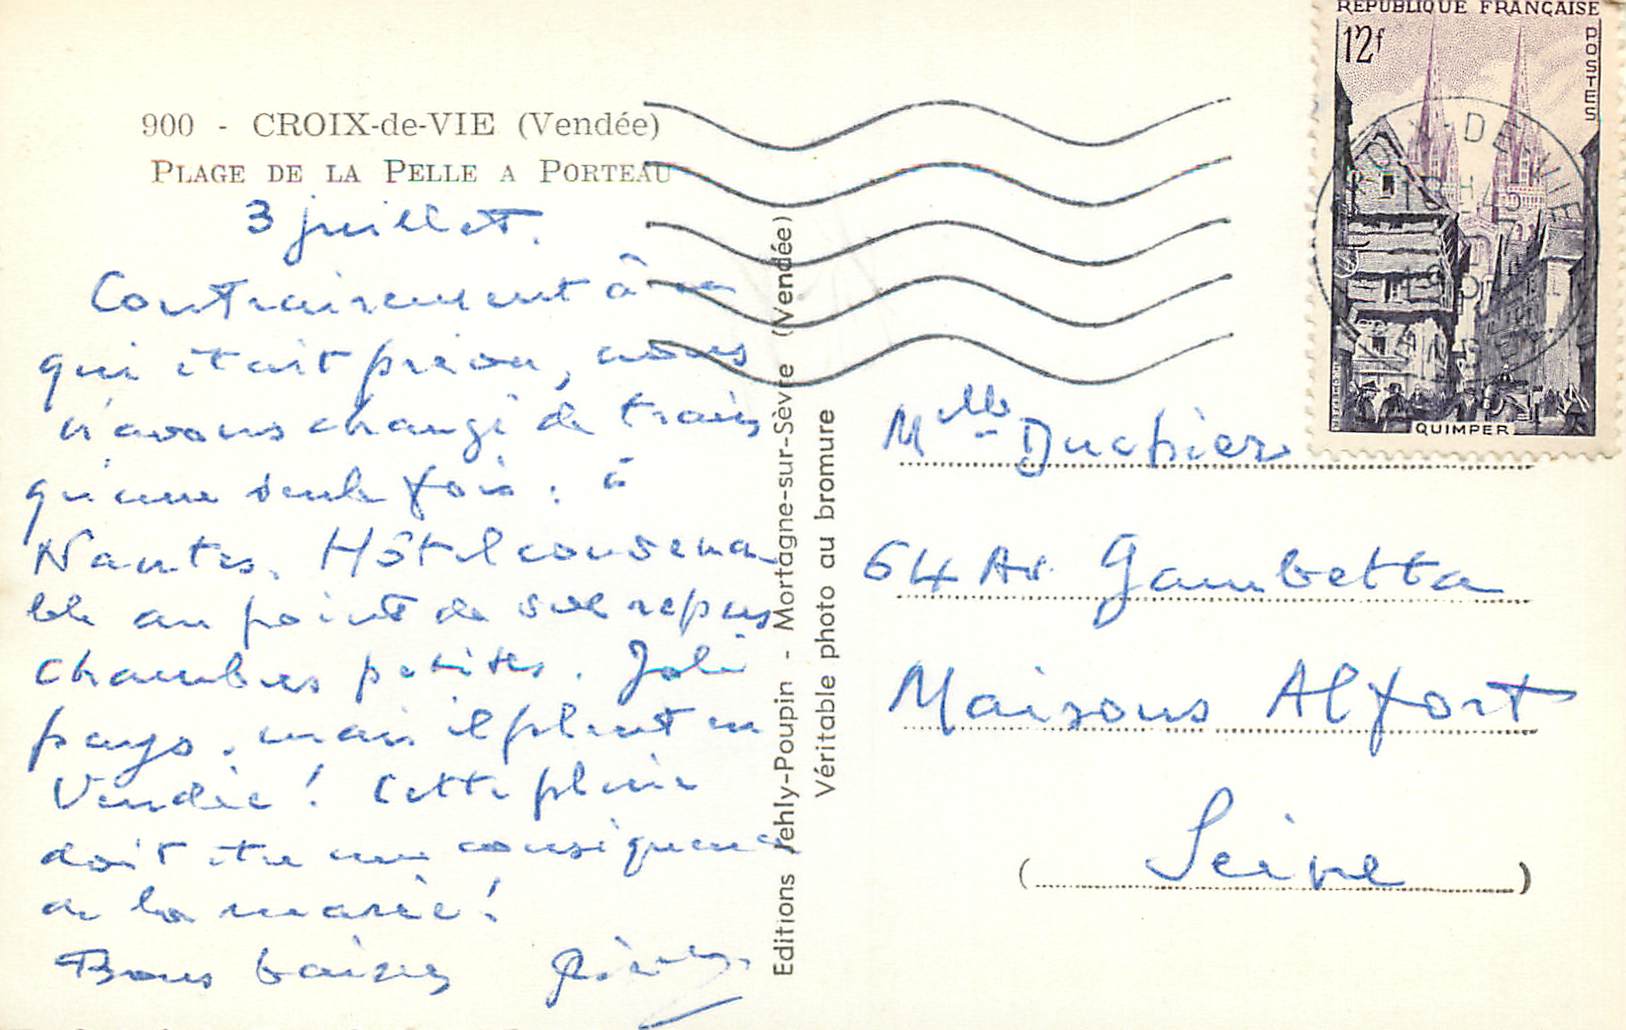 900 - CROIX-de-VIE (Vendée)
PLAGE DE LA PELLE A PORTEAU
3 juillet.
Contrairement à ce
qui était prévu, nous
n'avons changé de train
qu'une seule fois : à
Nantes. Hôtel convena
ble au point de vue repas
chambres petites. Joli
pays, mais il pleut en
Vendée ! Cette pluie
doit être une conséquence
de la marée !
Bons baisers
Editions Jehly-Poupin - Mortagne-sur-Sèvre (Vendée)
Véritable photo au bromure
REPUBLIQUE FRANÇAISE
12f
POSTES
QUIMPER
CROIX-DE-VIE
VENDEE
Mlle Duchier
64 Av. Gambetta
Maisons Alfort
( Seine )